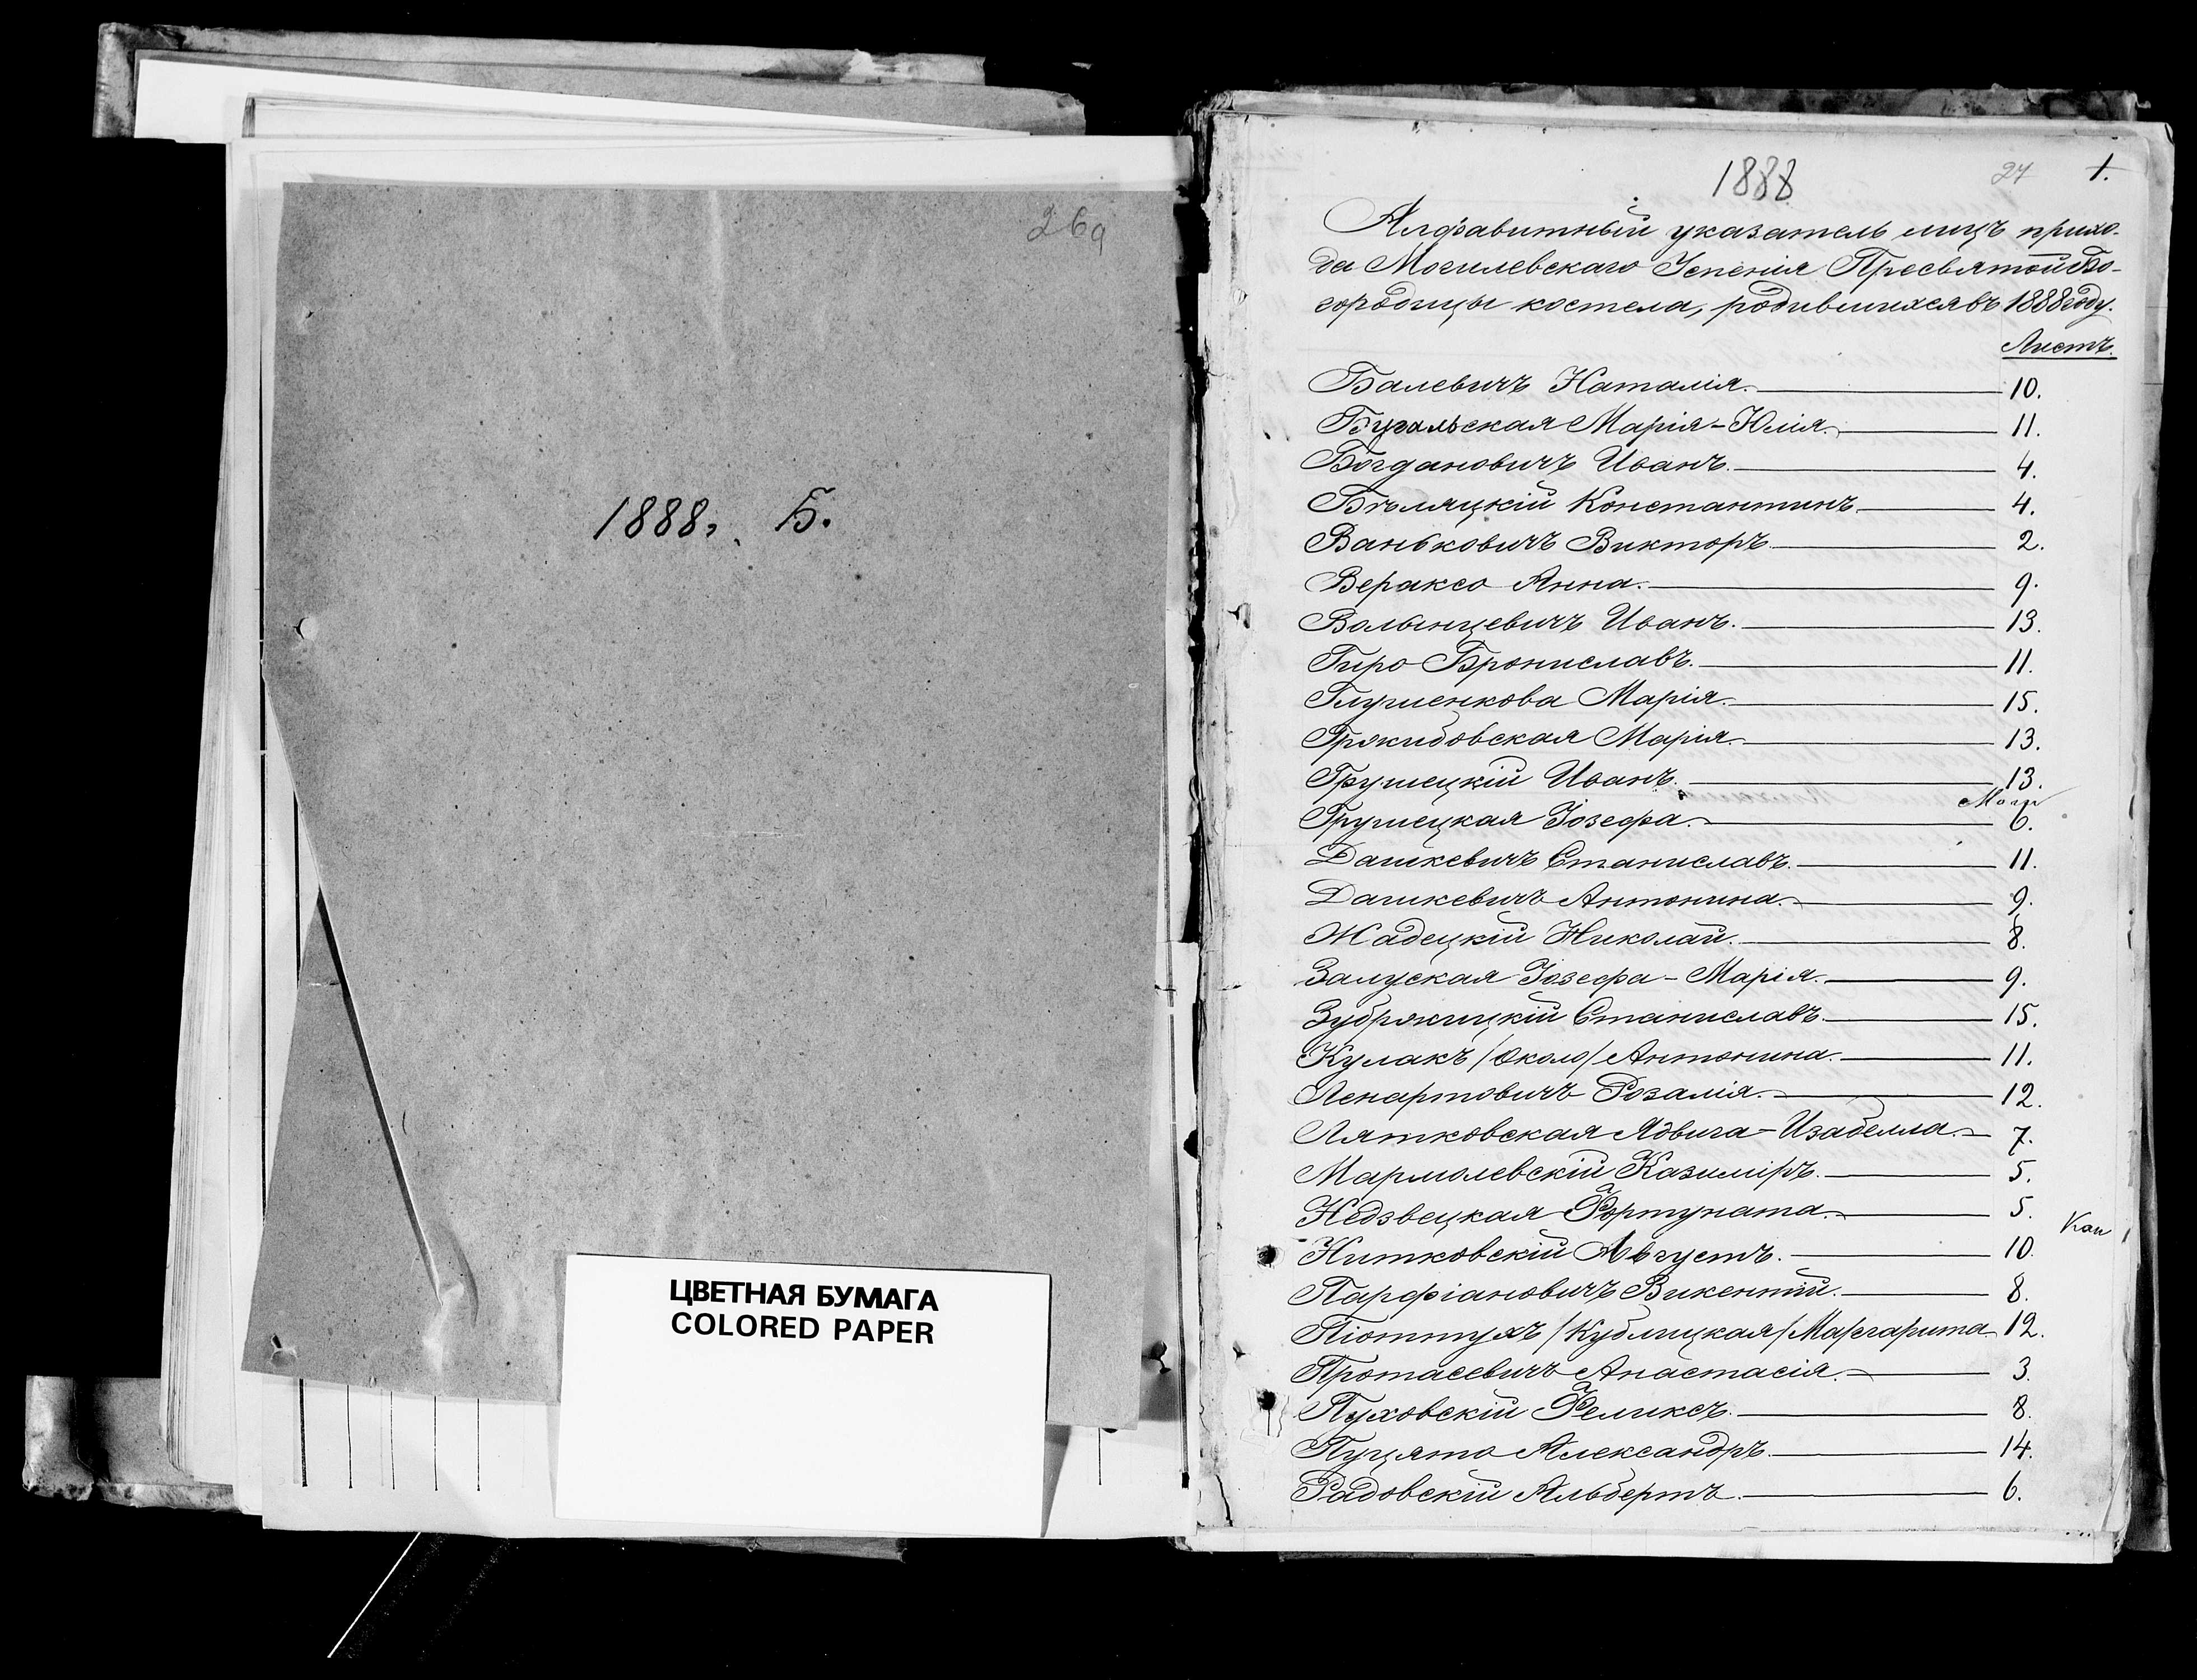 26а
1888. Б.
ЦВЕТНАЯ БУМАГА
COLORED PAPER
1888
27 1.
Алфавитный указатель лицъ прихо-
да Могилевскаго Успенія Пресвятой Бо-
городицы костела, родившихся въ 1888 году.
Листъ.
Балевичъ Наталія. 10.
Бугальская Марія-Юлія. 11.
Богдановичъ Иванъ. 4.
Бѣляцкій Константинъ. 4.
Ваньковичъ Викторъ. 2.
Вераксо Анна. 9.
Волынцевичъ Иванъ. 13.
Гиро Брониславъ. 11.
Глушенкова Марія. 15.
Гржибовская Марія. 13.
Грушецкій Иванъ. 13.
Моги
Грушецкая Іозефа. 6.
Дашкевичъ Станиславъ. 11.
Дашкевичъ Антонина. 9.
Жадецкій Николай. 8.
Залуская Іозефа-Марія. 9.
Зубржицкій Станиславъ. 15.
Кулакъ /Около/ Антонина. 11.
Ленартовичъ Розалія. 12.
Лятковская Ядвига-Изабелла. 7.
Мармолевскій Казиміръ. 5.
Недзвецкая Фортуната. 5.
Кои
Нитковскій Августъ. 10.
Парфіановичъ Викентій. 8.
Піоттухъ /Кублицкая/ Маргарита 12.
Протасевичъ Анастасія. 3.
Пуховскій Феликсъ. 8.
Пуцято Александръ. 14.
Радовскій Альбертъ. 6.